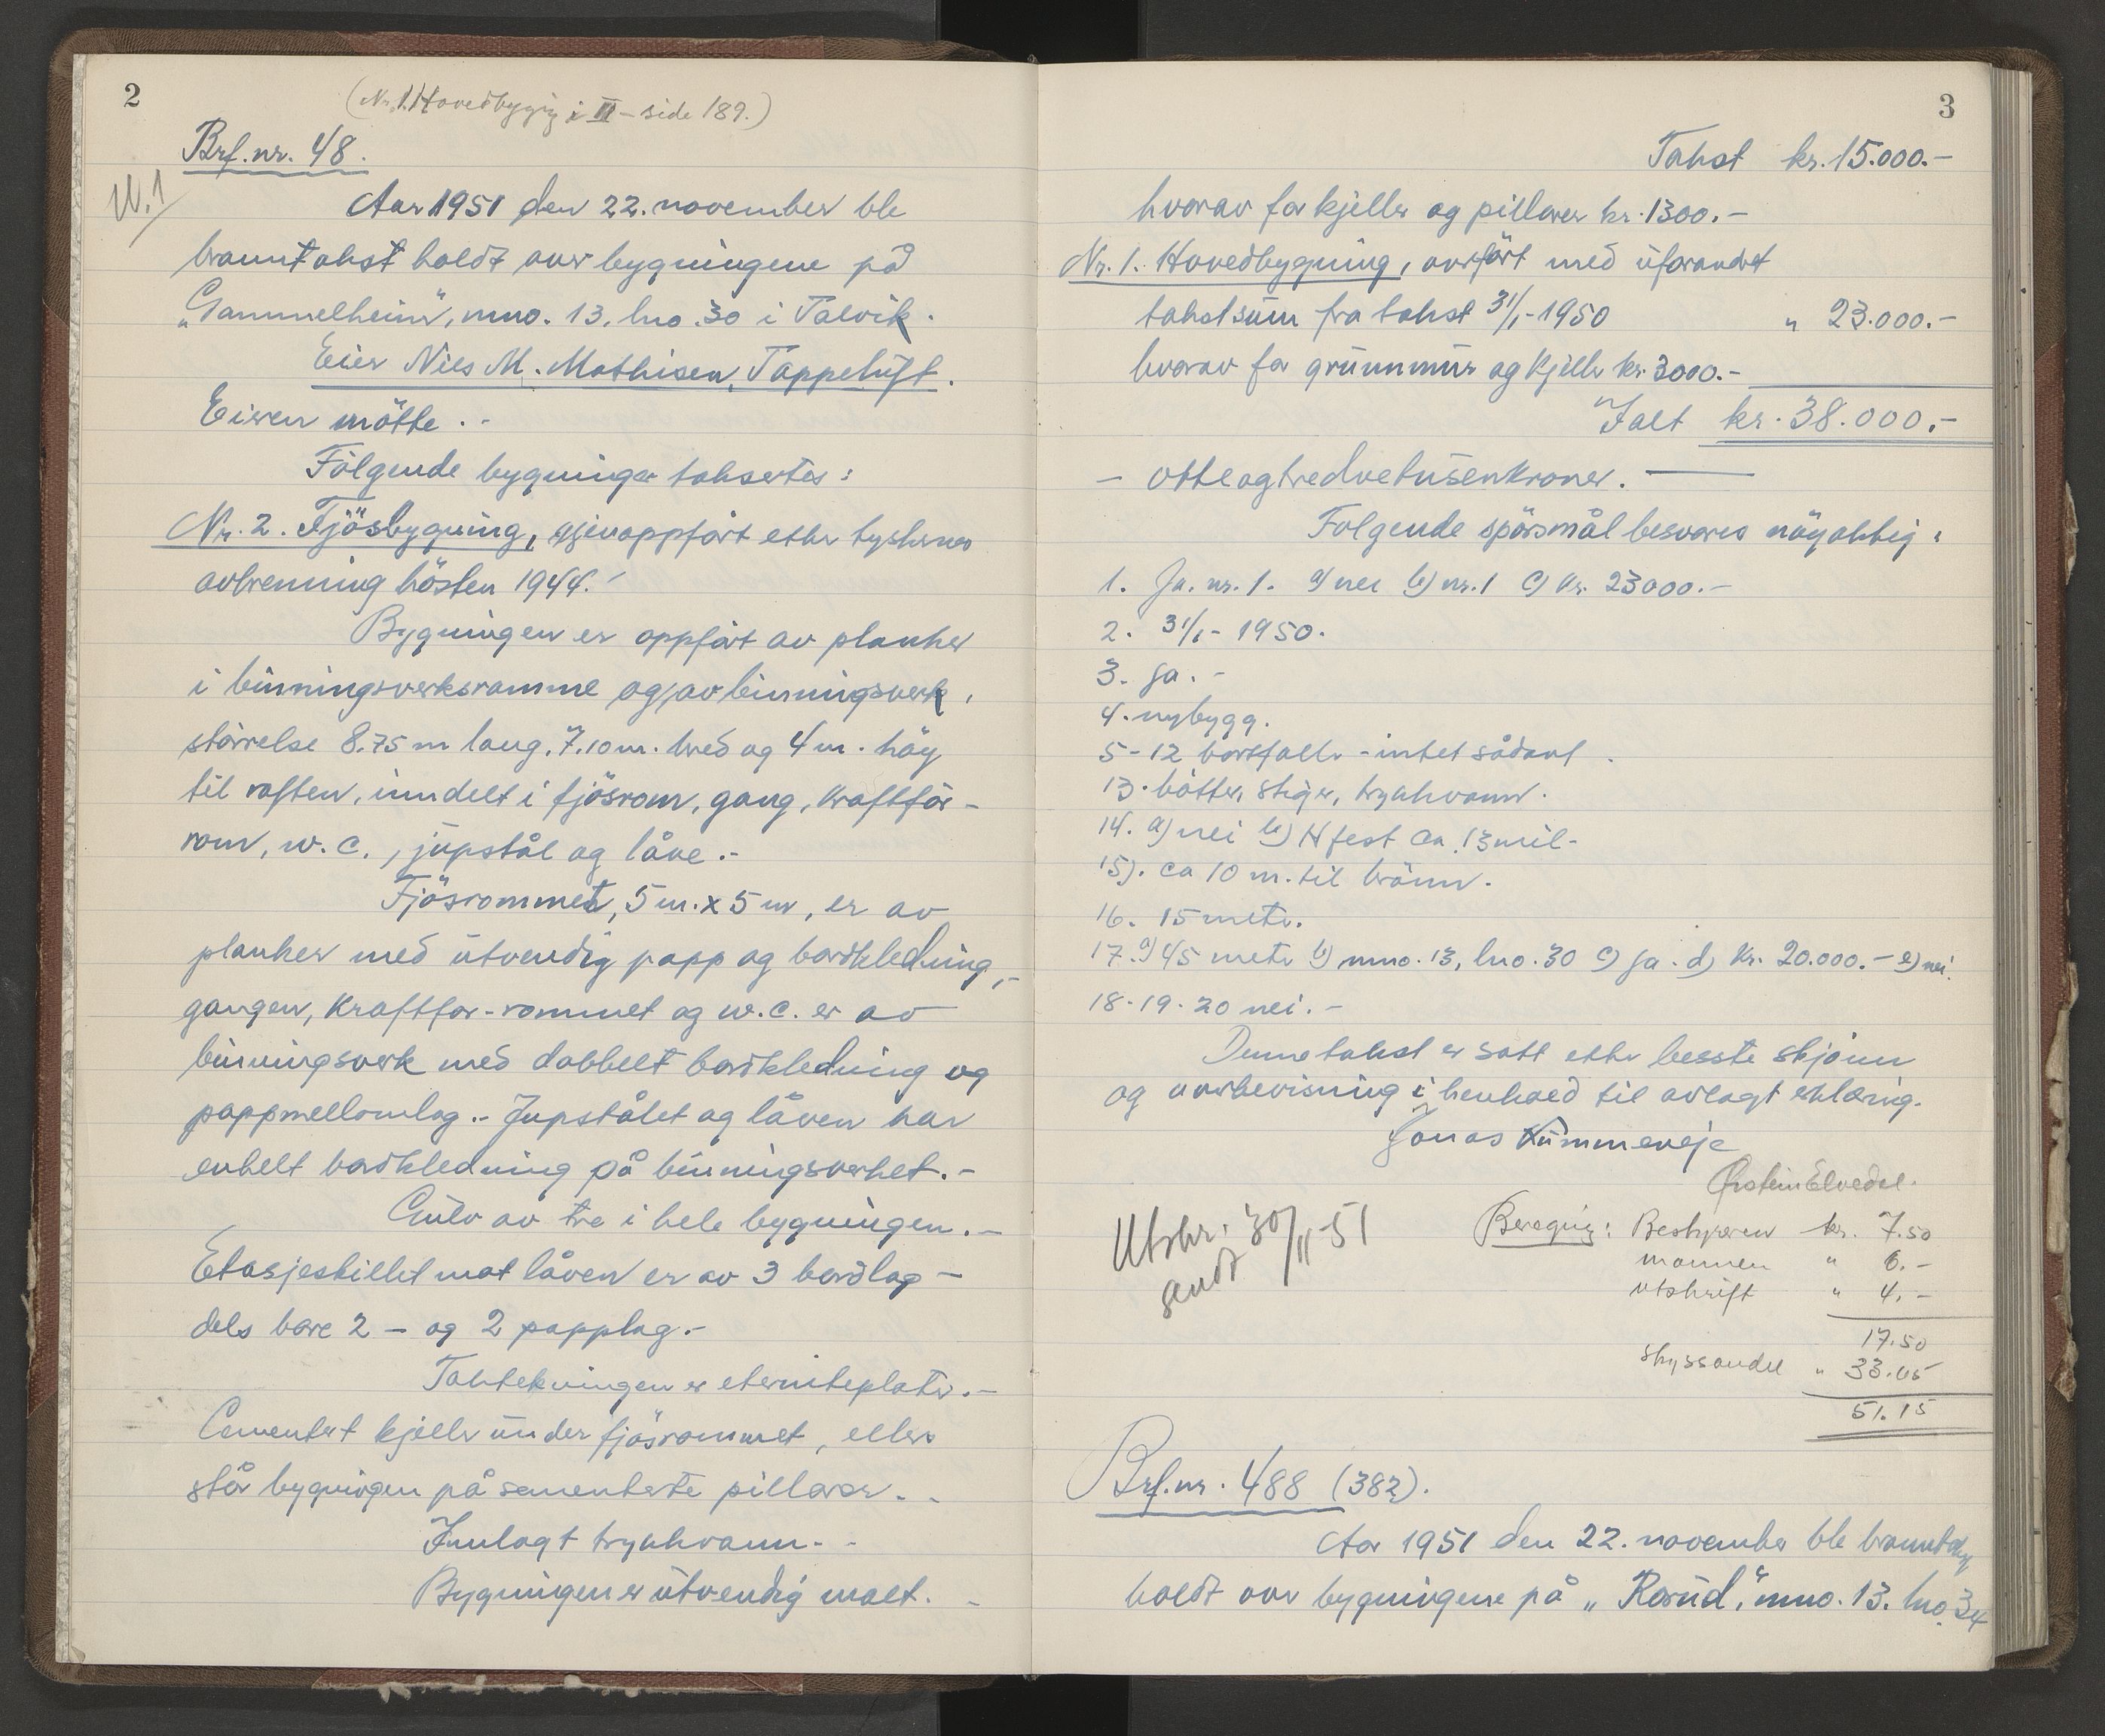 2
(Nr. 1 Hovedbygg i II – side 189.)
Brf. nr. 48.
W.1
Aar 1951 den 22. november ble
branntakst holdt over bygningene på
„Gammelheim", mno. 13, lno. 30 i Talvik.
Eier Nils M. Mathisen, Tappeluft.
Eieren mötte. -
Fölgende bygninger taksertes:
Nr. 2. Fjösbygning, gjenoppfört etter tyskernes
avbrenning hösten 1944.
Bygningen er oppfört av planker
i binningsverksramme og av binningsverk,
störrelse 8.75 m lang, 7.10 m. bred og 4 m. höy
til raften, inndelt i fjösrom, gang, kraftfór-
rom, w.c., jupstål og låve.-
Fjösrommet, 5 m. x 5 m, er av
planker med utvendig papp og bordkledning,-
gangen, kraftfor-rommet og w.c. er av
binningsverk med dobbelt bordkledning og
pappmellomlag.- Jupstålet og låven har
enkelt bordkledning på binningsverket.-
Gulv av tre i hele bygningen.-
Etasjeskillet mot låven er av 3 bordlag -
dels bare 2 - og 2 papplag.-
Taktekningen er eterniteplater.-
Cementert kjeller under fjösrommet, ellers
står bygningen på sementerte pillarer. -
Innlagt trykkvann. -
Bygningen er utvendig malt. -
3
Takst kr. 15.000.-
hvorav for kjeller og pillarer kr. 1300.-
Nr. 1. Hovedbygning, overfört med uforandret
takstsum fra takst 31/1-1950 " 23.000.-
hvorav for grunnmur og kjeller kr. 3000.-
Ialt kr. 38.000.-
- otteogtredvetusenkroner. -
Folgende spörsmål besvares nöyaktig:
1. Ja. nr. 1. a) nei b) nr. 1 c) kr. 23000.-
2. 31/1- 1950.
3. Ja. -
4. nybygg.
5-12 bortfaller - intet sådant.
13. bötter, stiger, trykkvann.
14. a) nei b) H fest ca. 13 mil-
15). ca 10 m. til brönn.
16. 15 meter.
17. a) 45 meter b) mno. 13, lno. 30 c) Ja. d) kr. 20.000.- e) nei.
18-19-20 nei. -
Denne takst er satt etter beste skjönn
og overbevisning i henhold til avlagt erklæring.
Jonas Kummeneje
Øistein Elvedal.
Utskr. 30/11-51
sendt
Beregnig: Bestyreren kr. 7.50
mannen " 6.-
utskrift " 4.-
17.50
skyssandel " 33.65
51.15
Brf. nr. 488 (382).
Aar 1951 den 22. november ble branntakst
holdt over bygningene på „Rorud", mno. 13. lno. 34